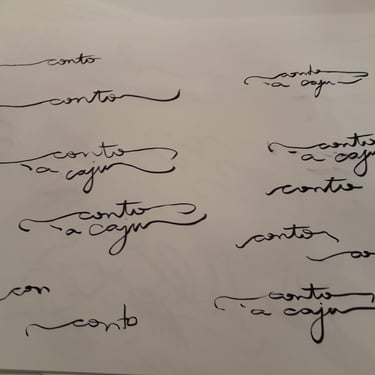 conto
conto
conto
a caju
conto
a caju
con
conto
conto
a caju
conto
a caju
conto
conto
co
conto
a caju